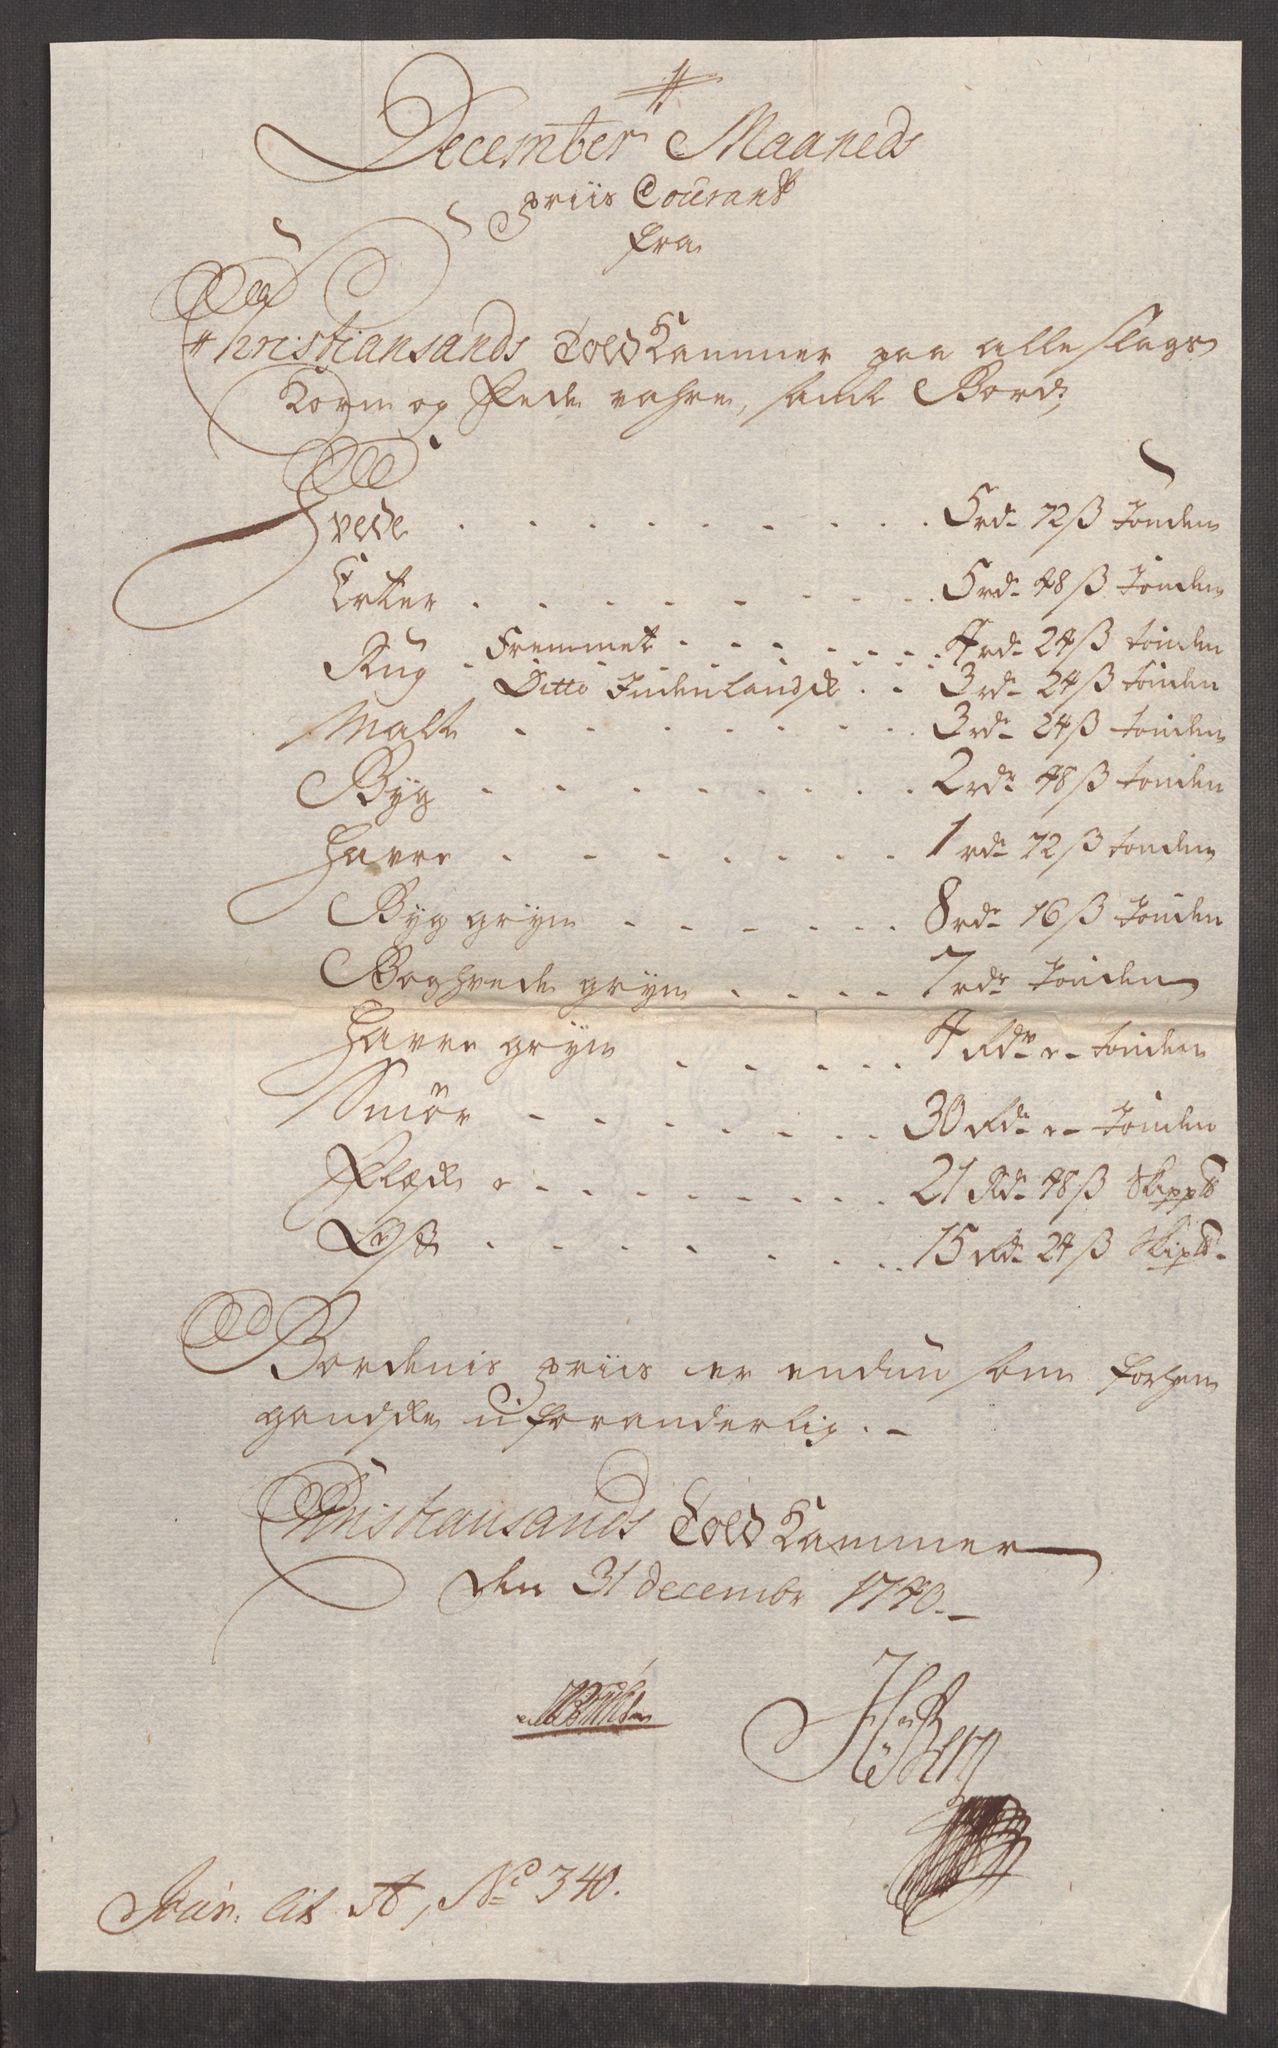 December Maaneds
priis Courant
fra
Christiansands Told Kammer paa alle slags
Korn og Fede vahre, samt Bord;
Hvede . . . . . . . . . 5 rd 72 ß Tønden
Erter . . . . . . . . 5 rd 48 ß Tønden
Rug Fremmet . . . . . . 4 rd 24 ß tønden
Ditto Indenlandsk . . 3 rd 24 ß tønden
Malt . . . . . . . . 3 rd 24 ß tønden
Byg . . . . . . . . 2 rd 48 ß tønden
Havre . . . . . . . 1 rd 72 ß tønden
Byg gryn . . . . . . 8 rd 16 ß Tønden
Boghvede gryn . . . . 7 rd Tønden
Havre gryn . . . . . 4 Rd - tønden
Smør . . . . . . . 30 Rd - Tønden
Flæsk . . . . . . . . 21 Rd 48 ß Skipp
Ost . . . . . . . . 15 Rd 24 ß Skip
Bordenis priis er endnu som forhen
gandske uforanderlig. -
Christiansands Told Kammer
den 31 decembr 1740. -
Jour. lit A, No 340.